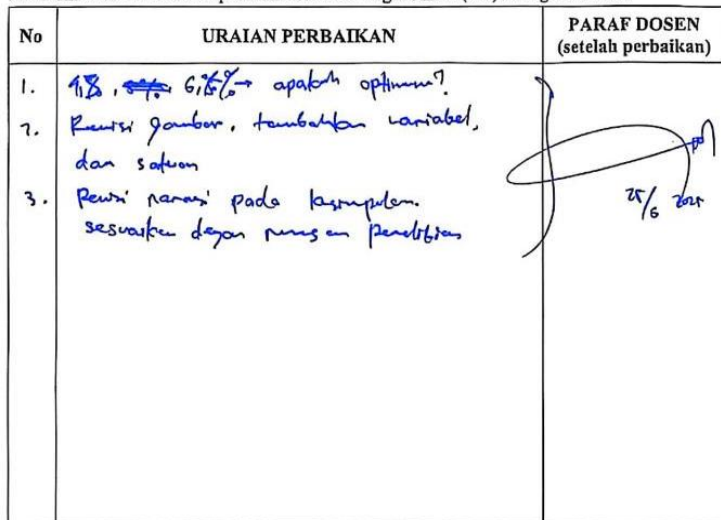 No URAIAN PERBAIKAN PARAF DOSEN
(setelah perbaikan)
1. → apakah optimum?
2. Revisi gambar, tambahkan variabel,
dan satuan
3. Revisi narasi pada kesimpulan.
sesuaikan dengan penelitian
25/6 2025